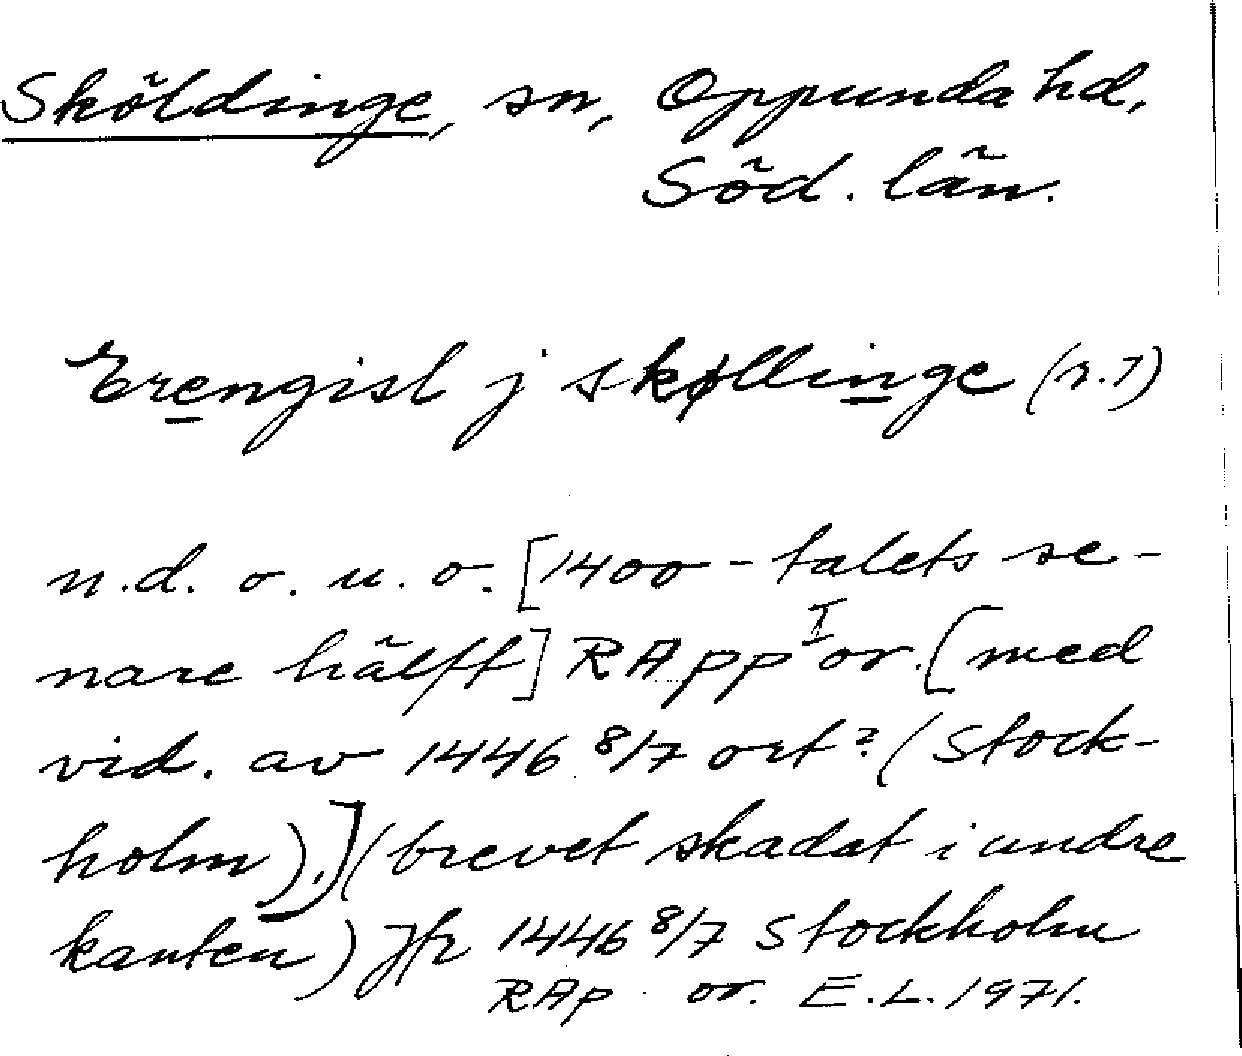 Sköldinge, sn, Oppunda hd,
Söd. län.
Erengisl j skøllinge (r. 7)
n.d. o. u. o. [1400-talets se-
nare hälft] RApp I or. [med
vid. av 1446 8/7 ort? (Stock-
holm).] (brevet skadat i undre
kanten) Jfr 1446 8/7 Stockholm
RAp or. E.L. 1971.